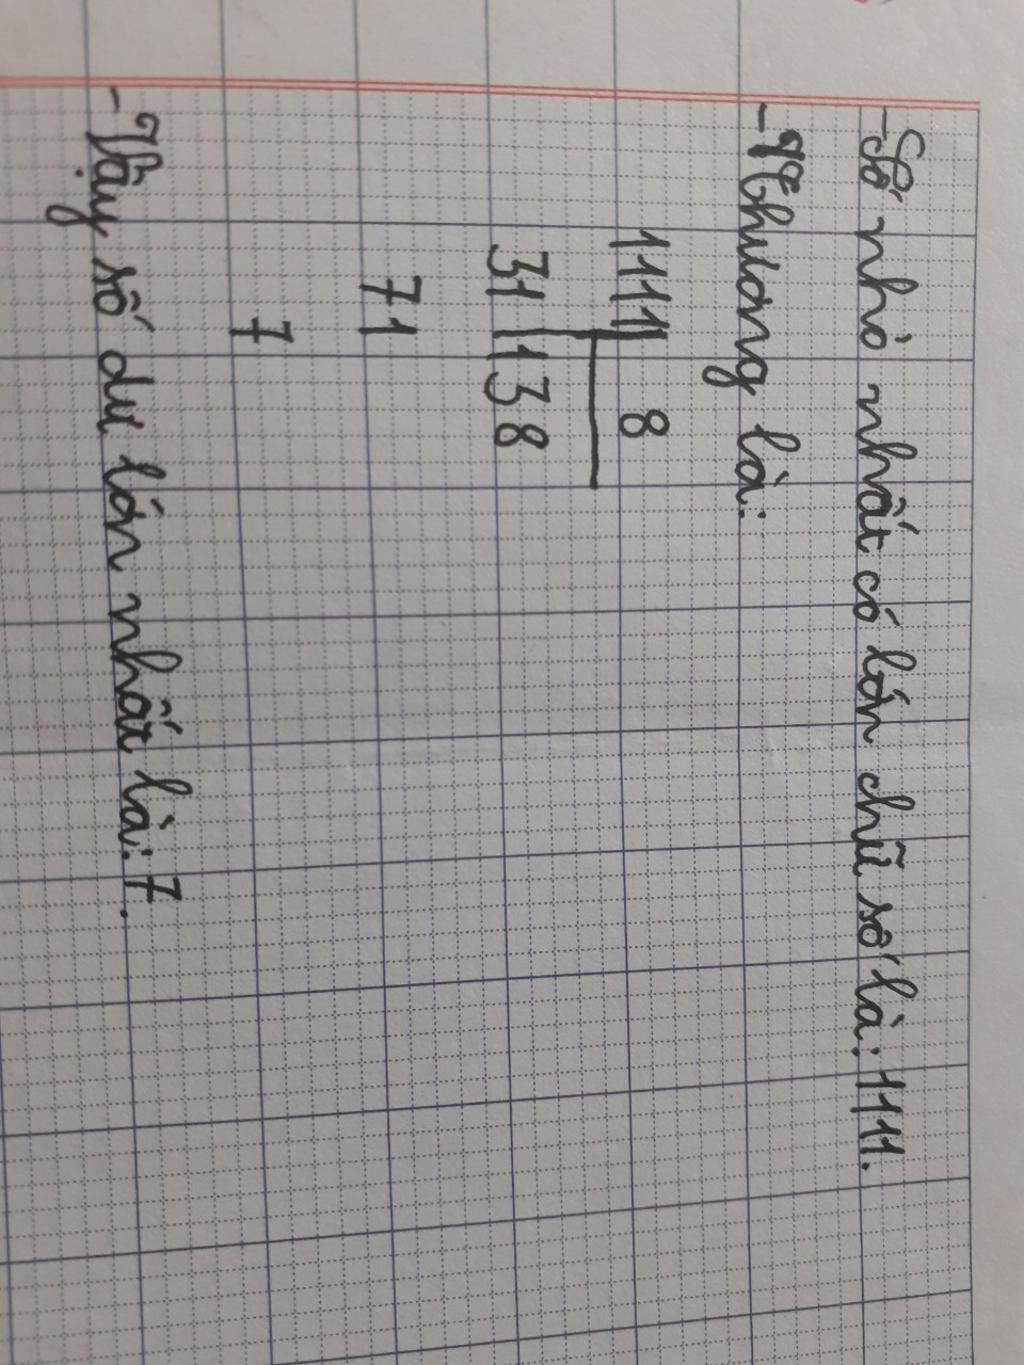 - Số nhỏ nhất có bốn chữ số là: 1111.
- Thương là:
1111 8
31 138
71
7
- Vậy số dư lớn nhất là: 7.